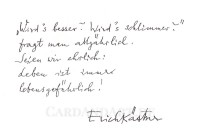 „Wird's besser? Wird's schlimmer?"
fragt man alljährlich.
Seien wir ehrlich:
Leben ist immer
lebensgefährlich!
Erich Kästner
CARDALDADE